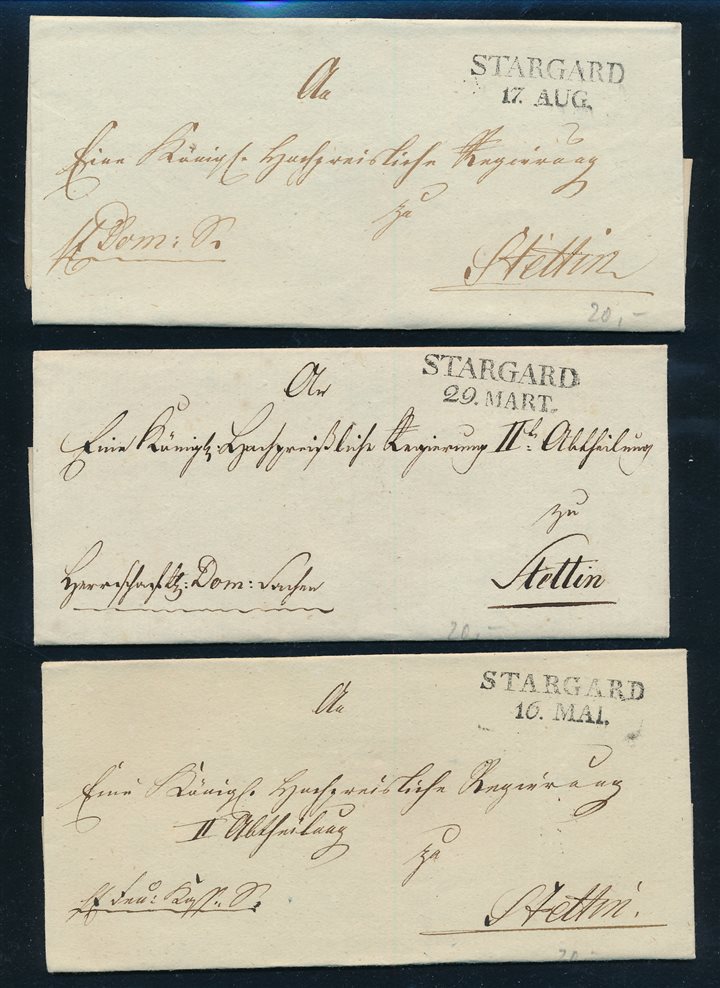 STARGARD
17. AUG.
An
Eine Königl. Hochpreisliche Regierung
zu
Dom: S.
Stettin
20,-
STARGARD
29. MART.
An
Eine Königl. Hochpreißliche Regierung II Abtheilung
zu
Herrschaftl: Dom: Sachen
Stettin
20,-
STARGARD
16. MAI.
An
Eine Königl. Hochpreisliche Regierung
II Abtheilung
zu
S.
Stettin.
20,-